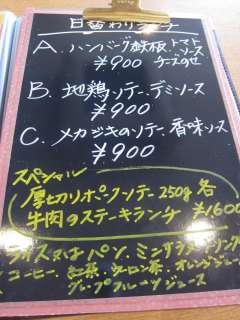 日替わりランチ
A. ハンバーグ鉄板 トマトソース
¥900 チーズのせ
B. 地鶏ソテー デミソース
¥900
C. メカジキのソテー 香味ソース
¥900
スペシャル
厚切りポークソテー250g 各
牛肉のステーキランチ ¥1600
ライス又はパン、ミニサラダ、ドリンク
コーヒー、紅茶、ウーロン茶、オレンジジュース
グレープフルーツジュース